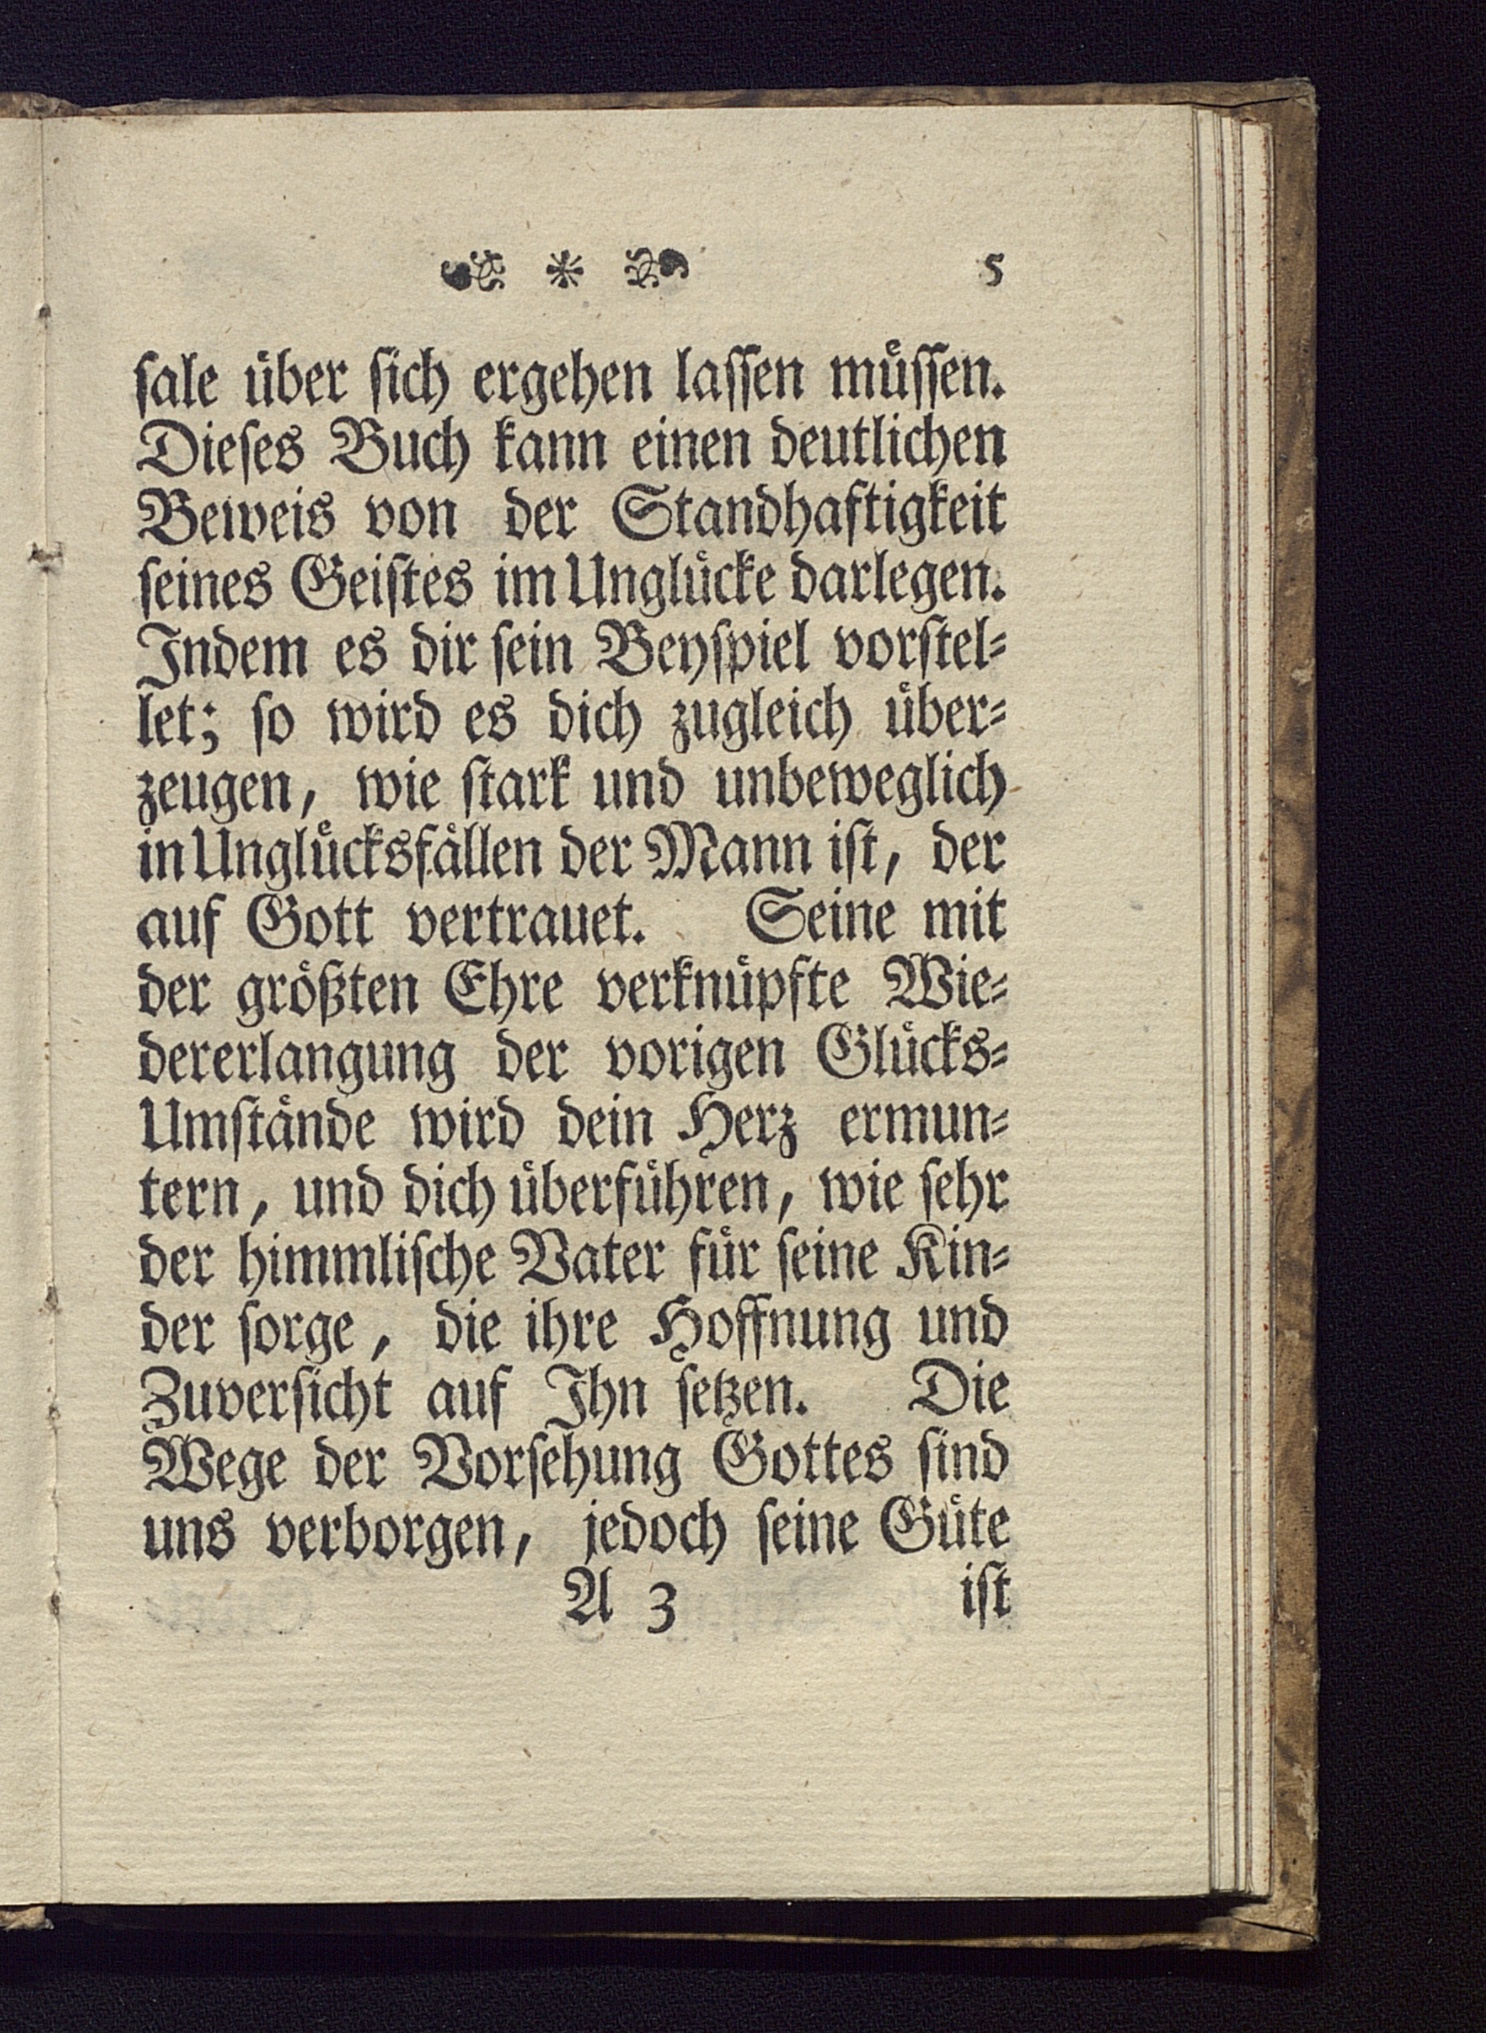 * 5
ſale uͤber ſich ergehen laſſen muͤſſen.
Dieſes Buch kann einen deutlichen
Beweis von der Standhaftigkeit
ſeines Geiſtes im Ungluͤcke darlegen.
Indem es dir ſein Beyſpiel vorſtel⸗
let; ſo wird es dich zugleich uͤber⸗
zeugen, wie ſtark und unbeweglich
in Ungluͤcksfaͤllen der Mann iſt, der
auf Gott vertrauet. Seine mit
der groͤßten Ehre verknuͤpfte Wie⸗
dererlangung der vorigen Gluͤcks⸗
Umſtaͤnde wird dein Herz ermun⸗
tern, und dich uͤberfuͤhren, wie ſehr
der himmliſche Vater fuͤr ſeine Kin⸗
der ſorge, die ihre Hoffnung und
Zuverſicht auf Ihn ſetzen. Die
Wege der Vorſehung Gottes ſind
uns verborgen, jedoch ſeine Guͤte
A 3 iſt